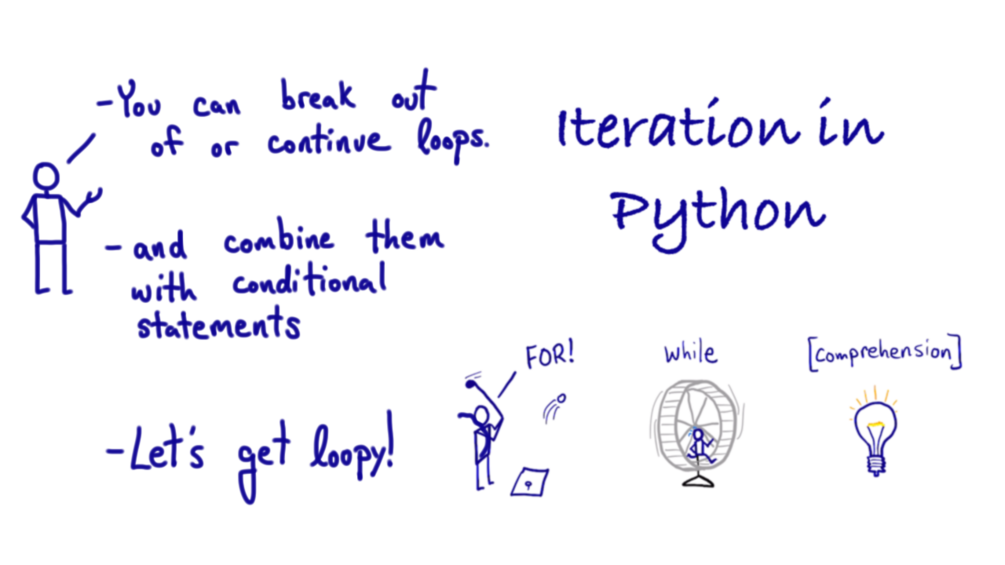 -You can break out
of or continue loops.
- and combine them
with conditional
statements
-Let's get loopy!
Iteration in
Python
FOR!
while
[comprehension]